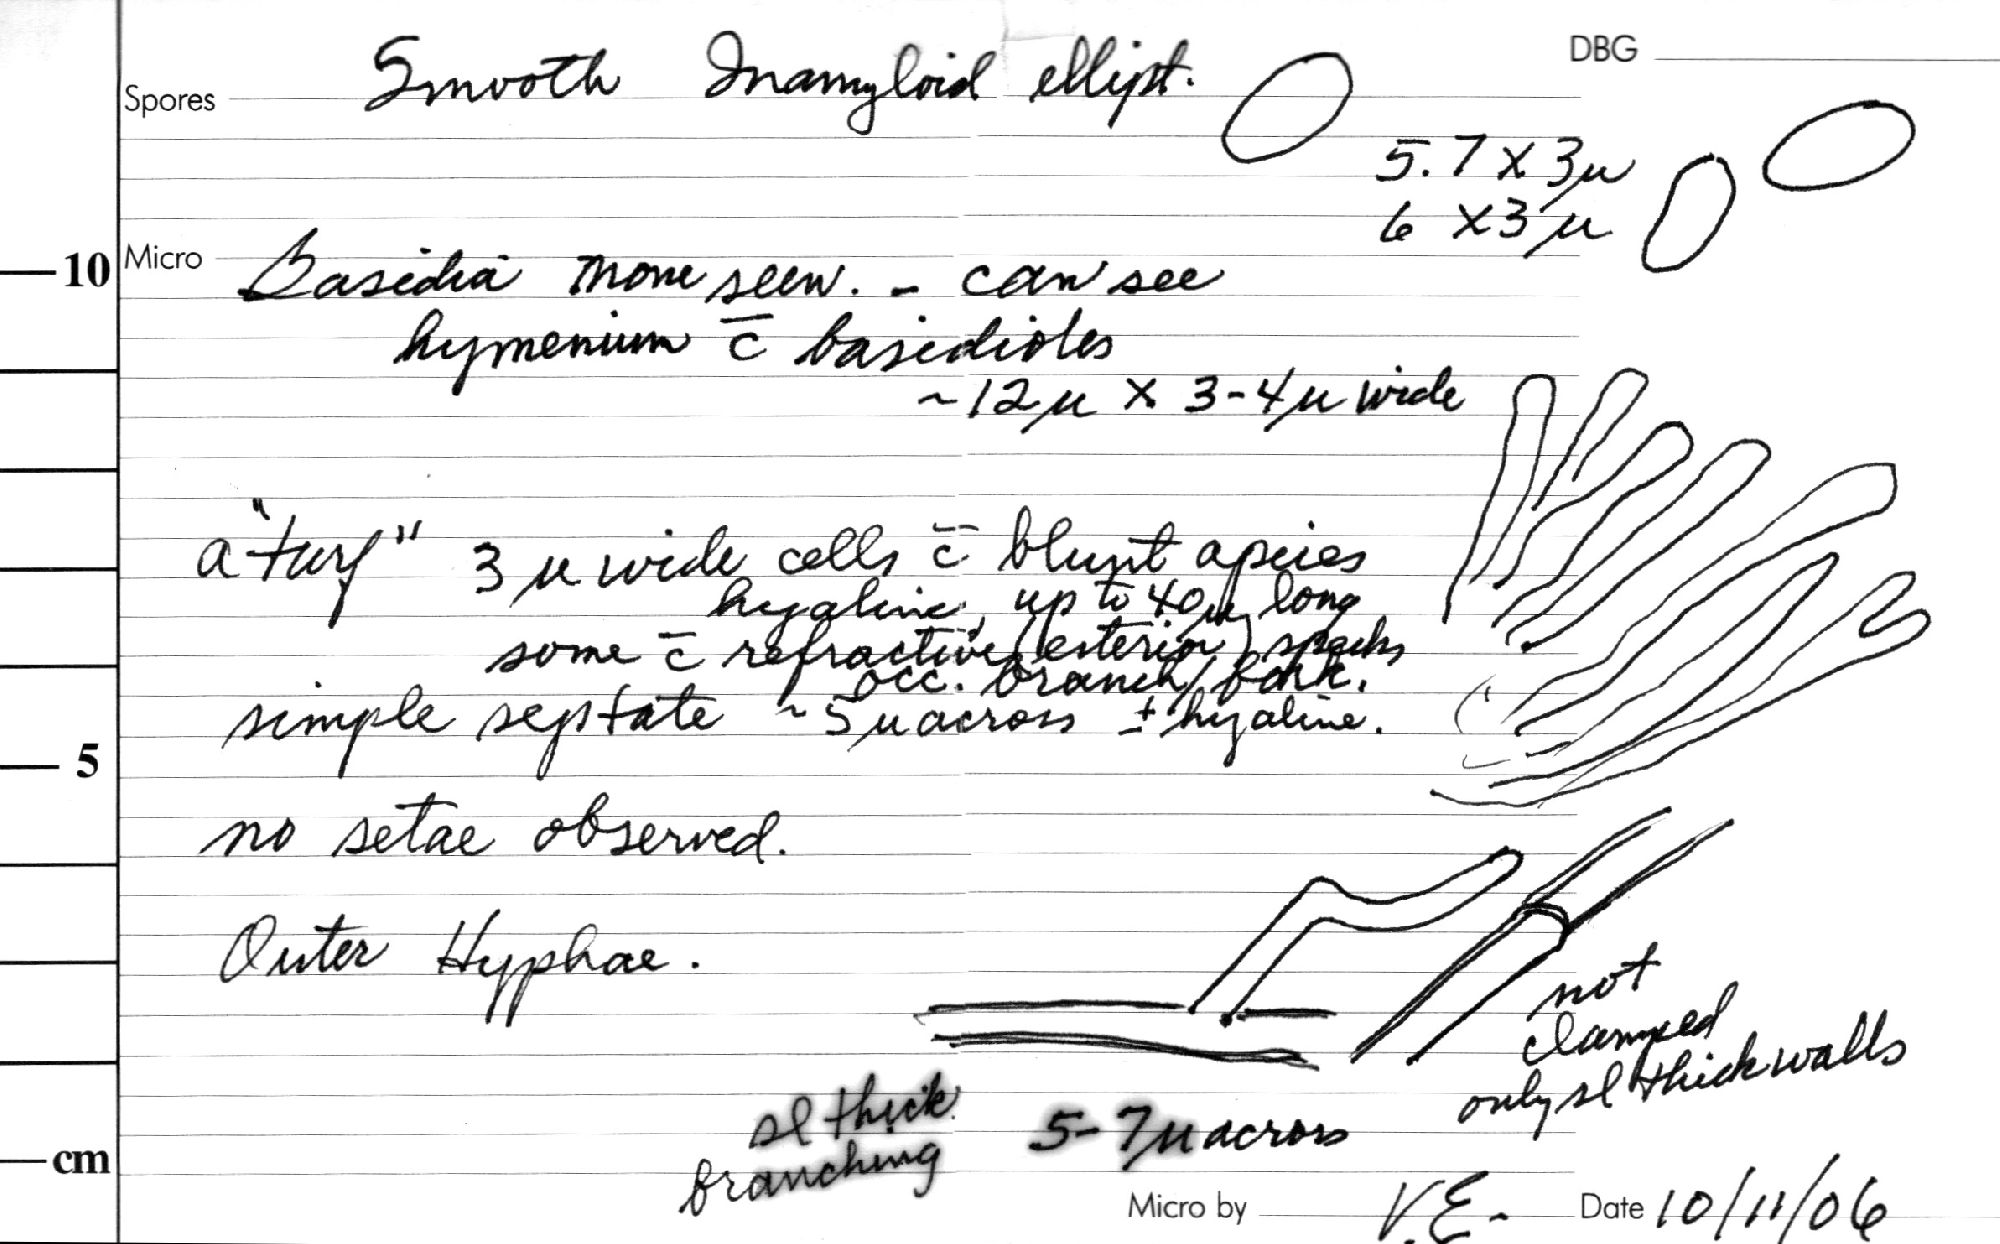 DBG
Spores Smooth Inamyloid ellipt.
5.7 X 3µ
6 X 3 µ
10
Micro Basidia none seen. - can see
hymenium c̄ basidioles
~12µ X 3-4µ wide
a "turf" 3 µ wide cells c̄ blunt apices
hyaline, up to 40µ long
some c̄ refractive (exterior) specks
occ. branch/fork.
simple septate ~5µ across ± hyaline.
5
no setae observed.
Outer Hyphae.
not
clamped
only sl thick walls
sl thick
branching
5-7µ across
cm
Micro by V.E. Date 10/11/06